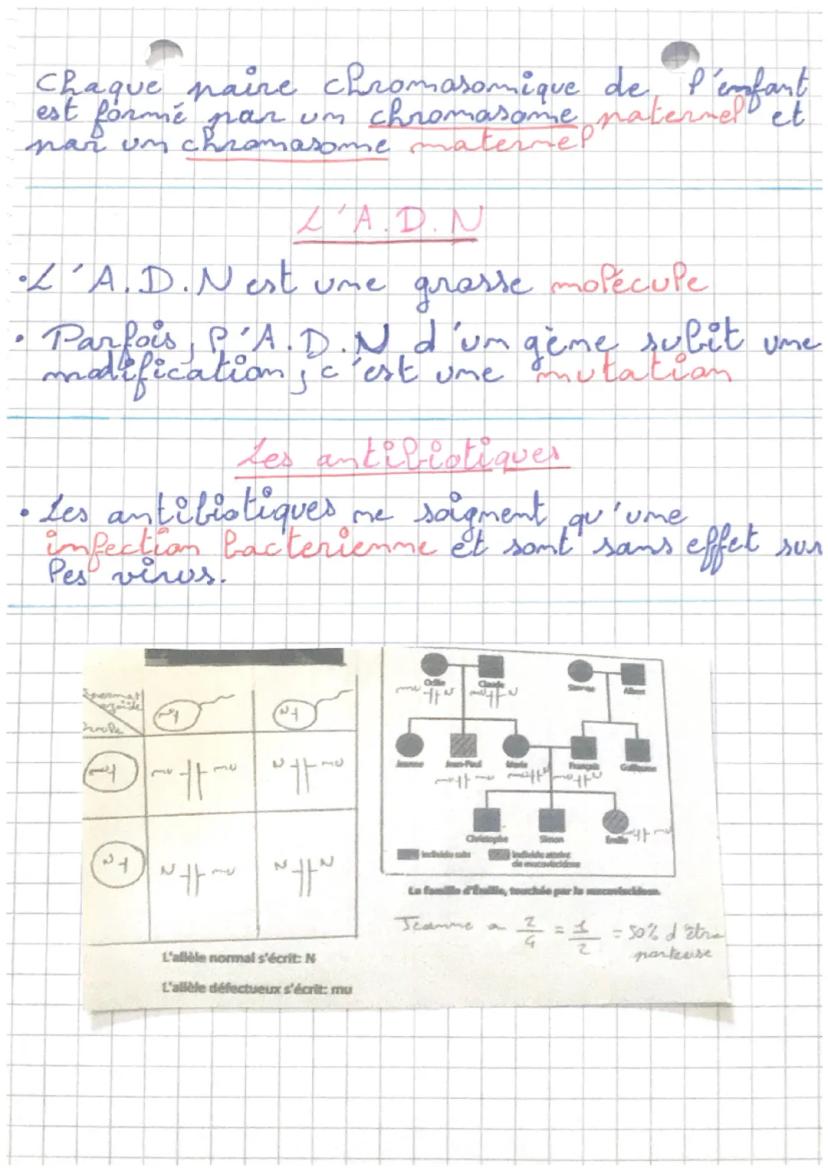 Chaque paire chromosomique de l'enfant
est formé par un chromosome paternel et
par un chromosome maternel
L'A.D.N
• L'A.D.N est une grosse molécule
• Parfois, l'A.D.N d'un gène subit une
modification ; c'est une mutation
Les antibiotiques
• Les antibiotiques ne soignent qu'une
infection bacterienne et sont sans effet sur
les virus.
Odile Claude Simone Albert
mu N mu N
Spermatozoïde
mu N
Jeanne Jean-Paul Marie François Guillaume
mu mu mu N mu N
mu mu mu N mu
Christophe Simon Émilie mu mu
N N mu N N
Individu sain Individu atteint
de mucoviscidose
La famille d'Émilie, touchée par la mucoviscidose.
Jeanne a 2/4 = 1/2 = 50% d'être
porteuse
L'allèle normal s'écrit: N
L'allèle défectueux s'écrit: mu